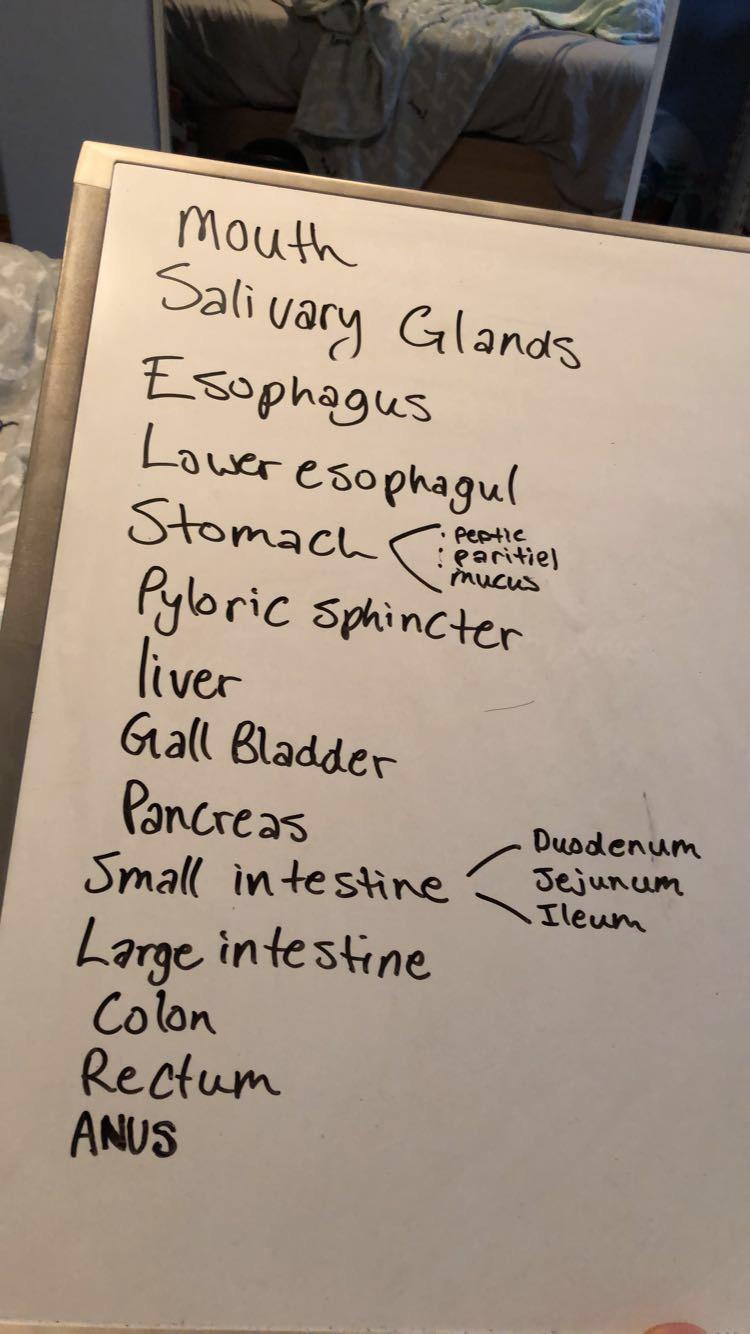 Mouth
Salivary Glands
Esophagus
Lower esophagul
Stomach
peptic
paritiel
mucus
Pyloric sphincter
liver
Gall Bladder
Pancreas
Small intestine
Duodenum
Jejunum
Ileum
Large intestine
Colon
Rectum
ANUS